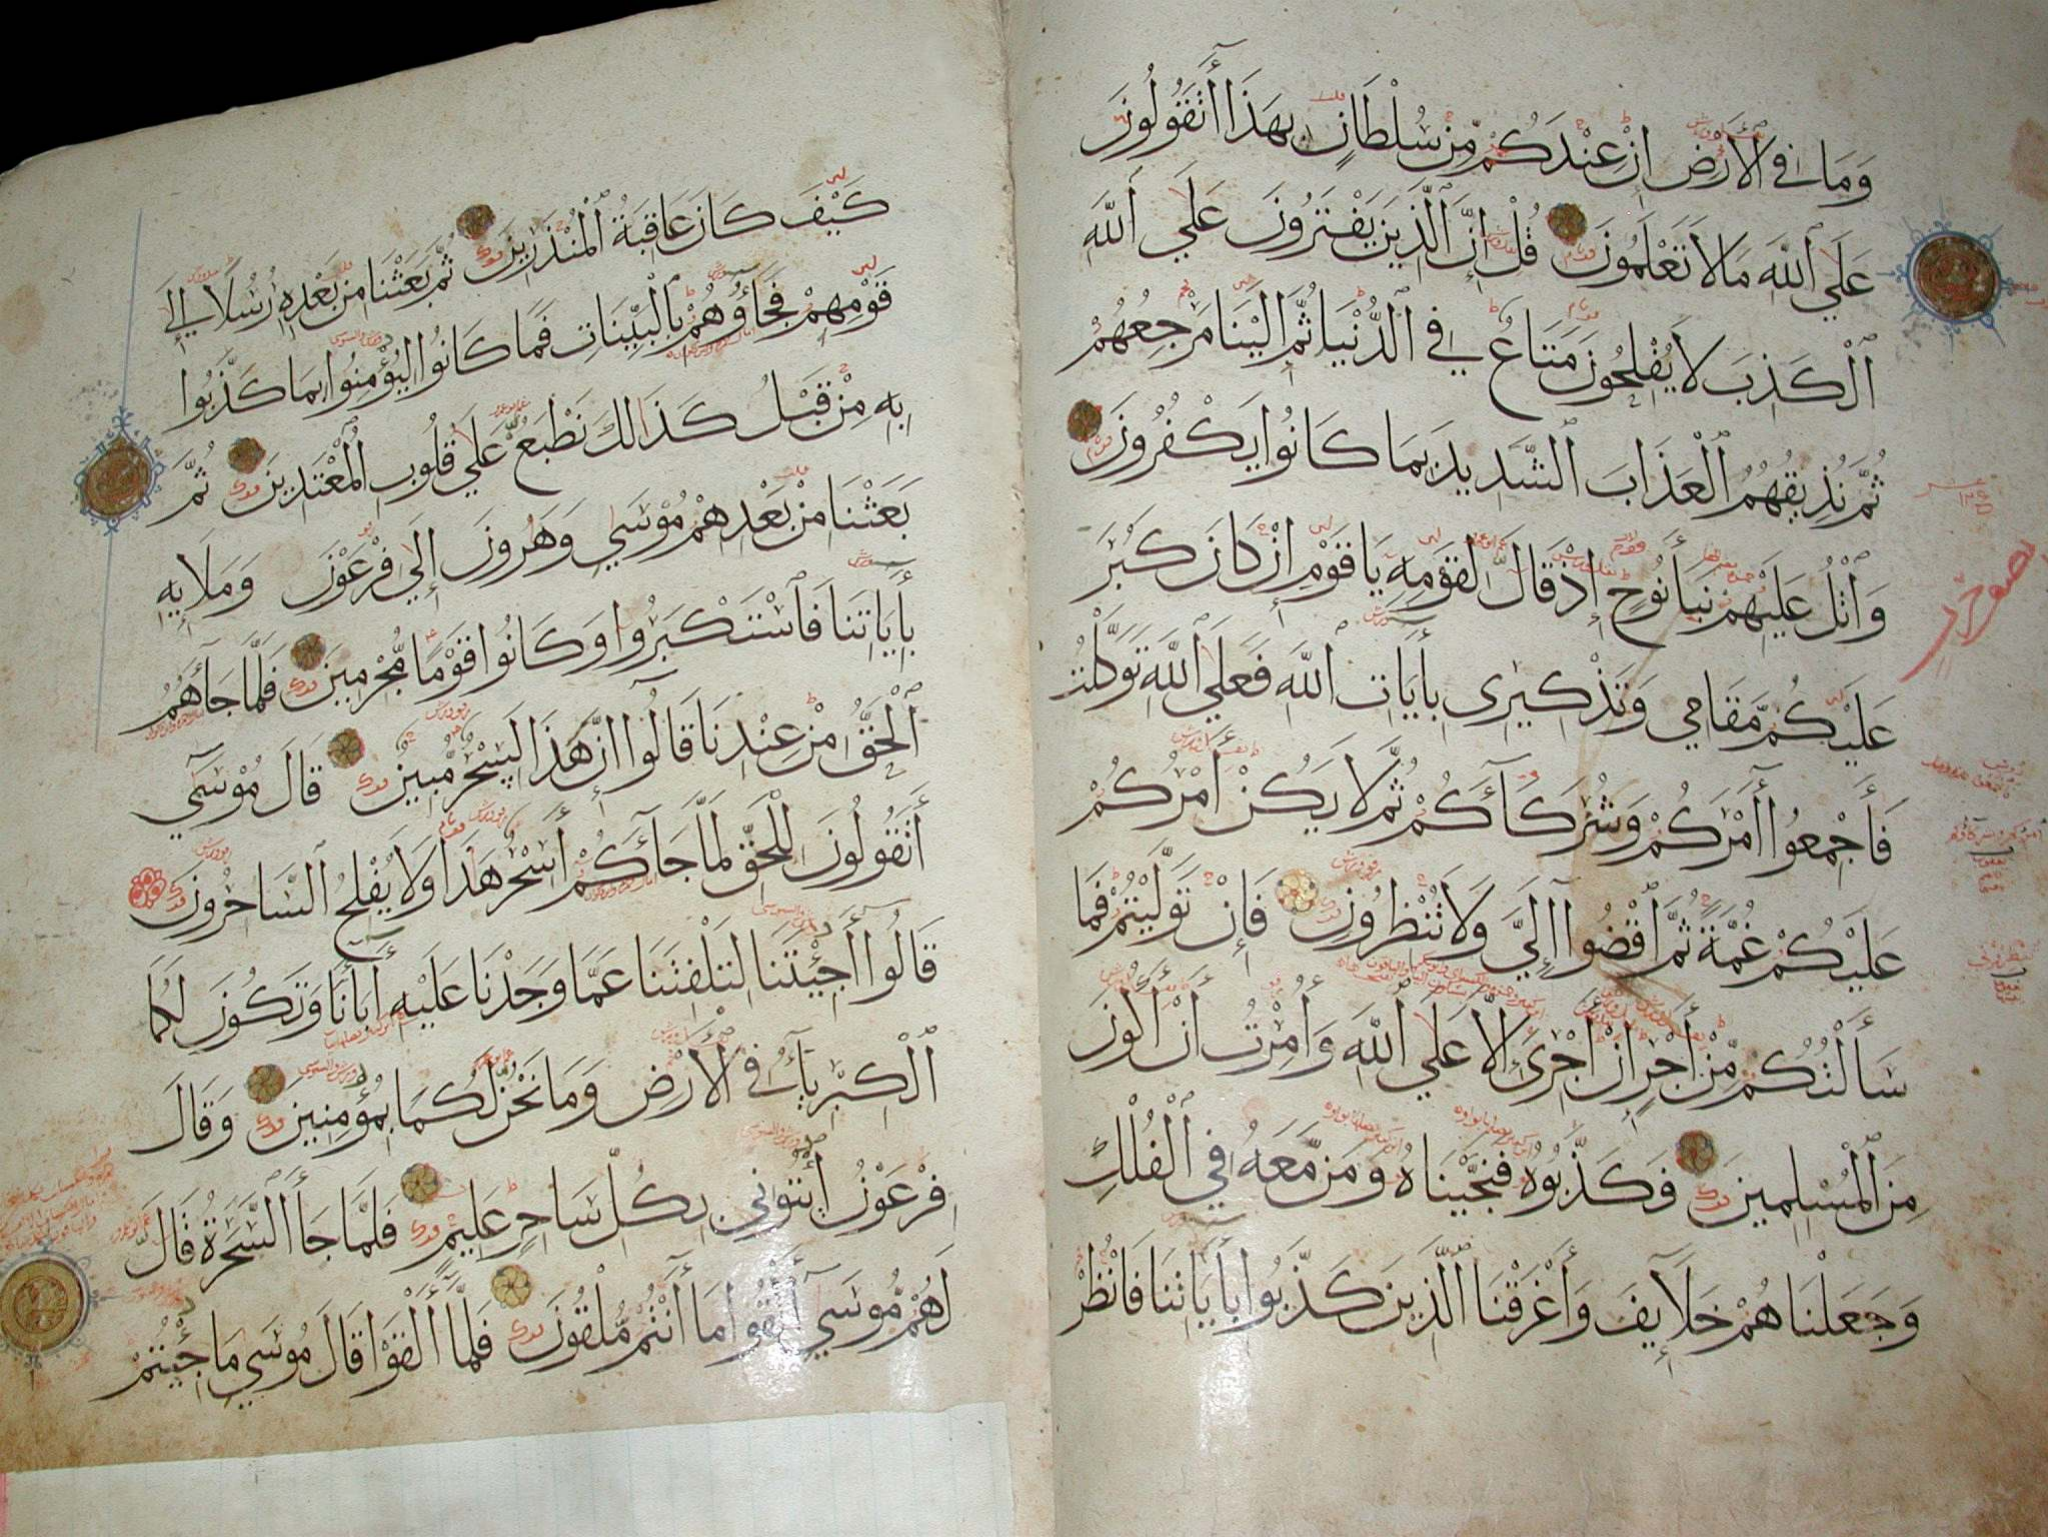 وَمَا فِي الْأَرْضِ إِنْ عِنْدَكُمْ مِّنْ سُلْطَانٍ بِهَذَا أَتَقُولُونَ
عَلَى اللَّهِ مَا لَا تَعْلَمُونَ قُلْ إِنَّ الَّذِينَ يَفْتَرُونَ عَلَى اللَّهِ
الْكَذِبَ لَا يُفْلِحُونَ مَتَاعٌ فِي الدُّنْيَا ثُمَّ إِلَيْنَا مَرْجِعُهُمْ
ثُمَّ نُذِيقُهُمُ الْعَذَابَ الشَّدِيدَ بِمَا كَانُوا يَكْفُرُونَ
وَاتْلُ عَلَيْهِمْ نَبَأَ نُوحٍ إِذْ قَالَ لِقَوْمِهِ يَا قَوْمِ إِنْ كَانَ كَبُرَ
عَلَيْكُمْ مَّقَامِي وَتَذْكِيرِي بِأَيَاتِ اللَّهِ فَعَلَى اللَّهِ تَوَكَّلْتُ
فَأَجْمِعُوا أَمْرَكُمْ وَشُرَكَآءَكُمْ ثُمَّ لَا يَكُنْ أَمْرُكُمْ
عَلَيْكُمْ غُمَّةً ثُمَّ اقْضُوا إِلَيَّ وَلَا تُنْظِرُونِ فَإِنْ تَوَلَّيْتُمْ فَمَا
سَأَلْتُكُمْ مِّنْ أَجْرٍ إِنْ أَجْرِيَ إِلَّا عَلَى اللَّهِ وَأُمِرْتُ أَنْ أَكُونَ
مِنَ الْمُسْلِمِينَ فَكَذَّبُوهُ فَنَجَّيْنَاهُ وَمَنْ مَّعَهُ فِي الْفُلْكِ
وَجَعَلْنَاهُمْ خَلَآيِفَ وَأَغْرَقْنَا الَّذِينَ كَذَّبُوا بِأَيَاتِنَا فَانْظُرْ
كَيْفَ كَانَ عَاقِبَةُ الْمُنْذَرِينَ ثُمَّ بَعَثْنَا مِنْ بَعْدِهِ رُسُلًا إِلَى
قَوْمِهِمْ فَجَاؤُهُمْ بِالْبَيِّنَاتِ فَمَا كَانُوا لِيُؤْمِنُوا بِمَا كَذَّبُوا
بِهِ مِنْ قَبْلُ كَذَالِكَ نَطْبَعُ عَلَى قُلُوبِ الْمُعْتَدِينَ ثُمَّ
بَعَثْنَا مِنْ بَعْدِهِمْ مُوسَى وَهَرُونَ إِلَى فِرْعَوْنَ وَمَلَإِيهِ
بِأَيَاتِنَا فَاسْتَكْبَرُوا وَكَانُوا قَوْمًا مُّجْرِمِينَ فَلَمَّا جَأَهُمُ
الْحَقُّ مِنْ عِنْدِنَا قَالُوا إِنَّ هَذَا لَسِحْرٌ مُّبِينٌ قَالَ مُوسَى
أَتَقُولُونَ لِلْحَقِّ لَمَّا جَآءَكُمْ أَسِحْرٌ هَذَا وَلَا يُفْلِحُ السَّاحِرُونَ
قَالُوا أَجِئْتَنَا لِتَلْفِتَنَا عَمَّا وَجَدْنَا عَلَيْهِ أَبَأَنَا وَتَكُونَ لَكُمَا
الْكِبْرِيَآءُ فِي الْأَرْضِ وَمَا نَحْنُ لَكُمَا بِمُؤْمِنِينَ وَقَالَ
فِرْعَوْنُ ائْتُونِي بِكُلِّ سَاحِرٍ عَلِيمٍ فَلَمَّا جَأَ السَّحَرَةُ قَالَ
لَهُمْ مُّوسَى أَلْقُوا مَا أَنْتُمْ مُّلْقُونَ فَلَمَّا أَلْقَوْا قَالَ مُوسَى مَا جِئْتُمْ